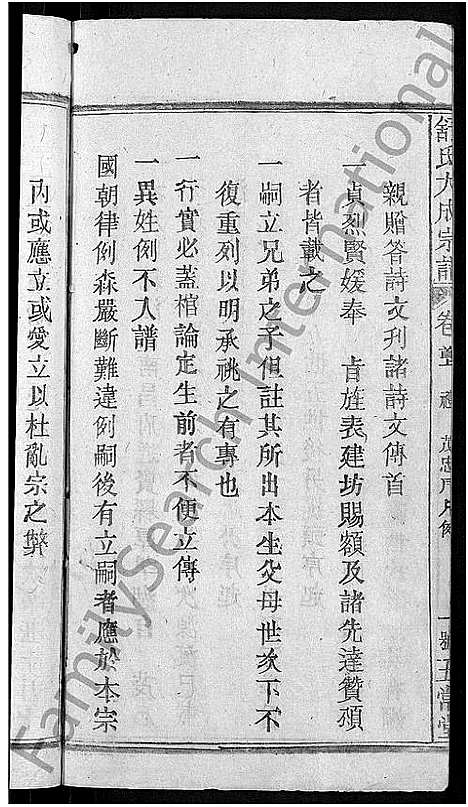 舒氏大成宗譜 卷首
親贈答詩文刋諸詩文傳首
一貞烈賢媛奉　旨旌表建坊賜額及諸先達贊頌
者皆載之
一嗣立兄弟之子但註其所出本生父母世次下不
復重列以明承祧之有專也
一行實必蓋棺論定生前者不便立傳
一異姓例不入譜
國朝律例森嚴斷難違例嗣後有立嗣者應於本宗
內或應立或愛立以杜亂宗之弊
FamilySearch International